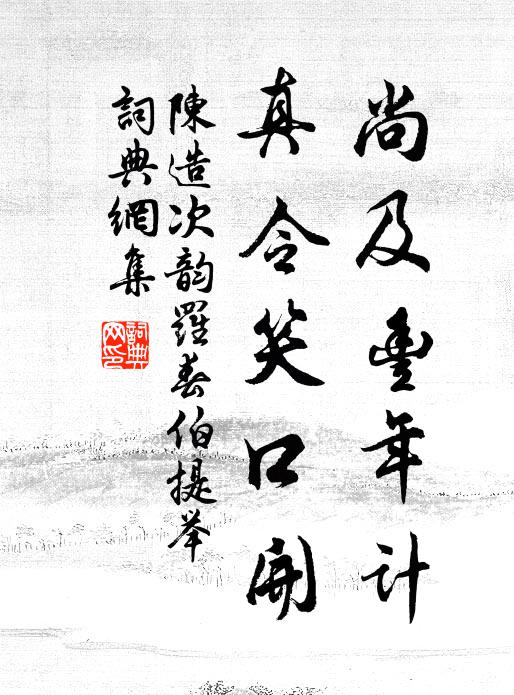 尚及豐年計
真令笑口開
陳造次韵羅春伯提举
詞典網集
詞典网印